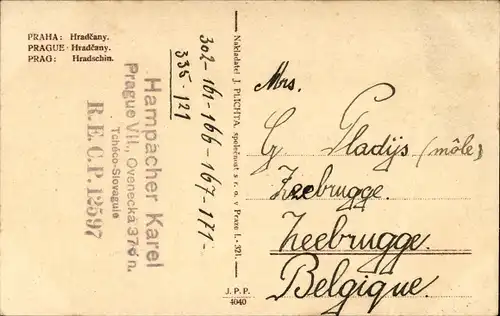 PRAHA: Hradčany.
PRAGUE: Hradčany.
PRAG: Hradschin.
Hampacher Karel
Prague VII., Ovenecká 376 n.
Tchéco-Slovaquie
R.E.C.P. 12597
302-161-166-167-171-
335-121
Nakladatel J. PLICHTA, společnost s r. o. v Praze I.-321.
J. P. P.
4040
Mrs.
G. Pladijs (môle)
Zeebrugge.
Zeebrugge.
Belgique.